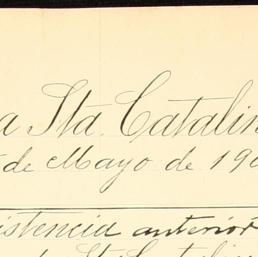 a Sta. Catalin
de Mayo de 19
istencia anterior